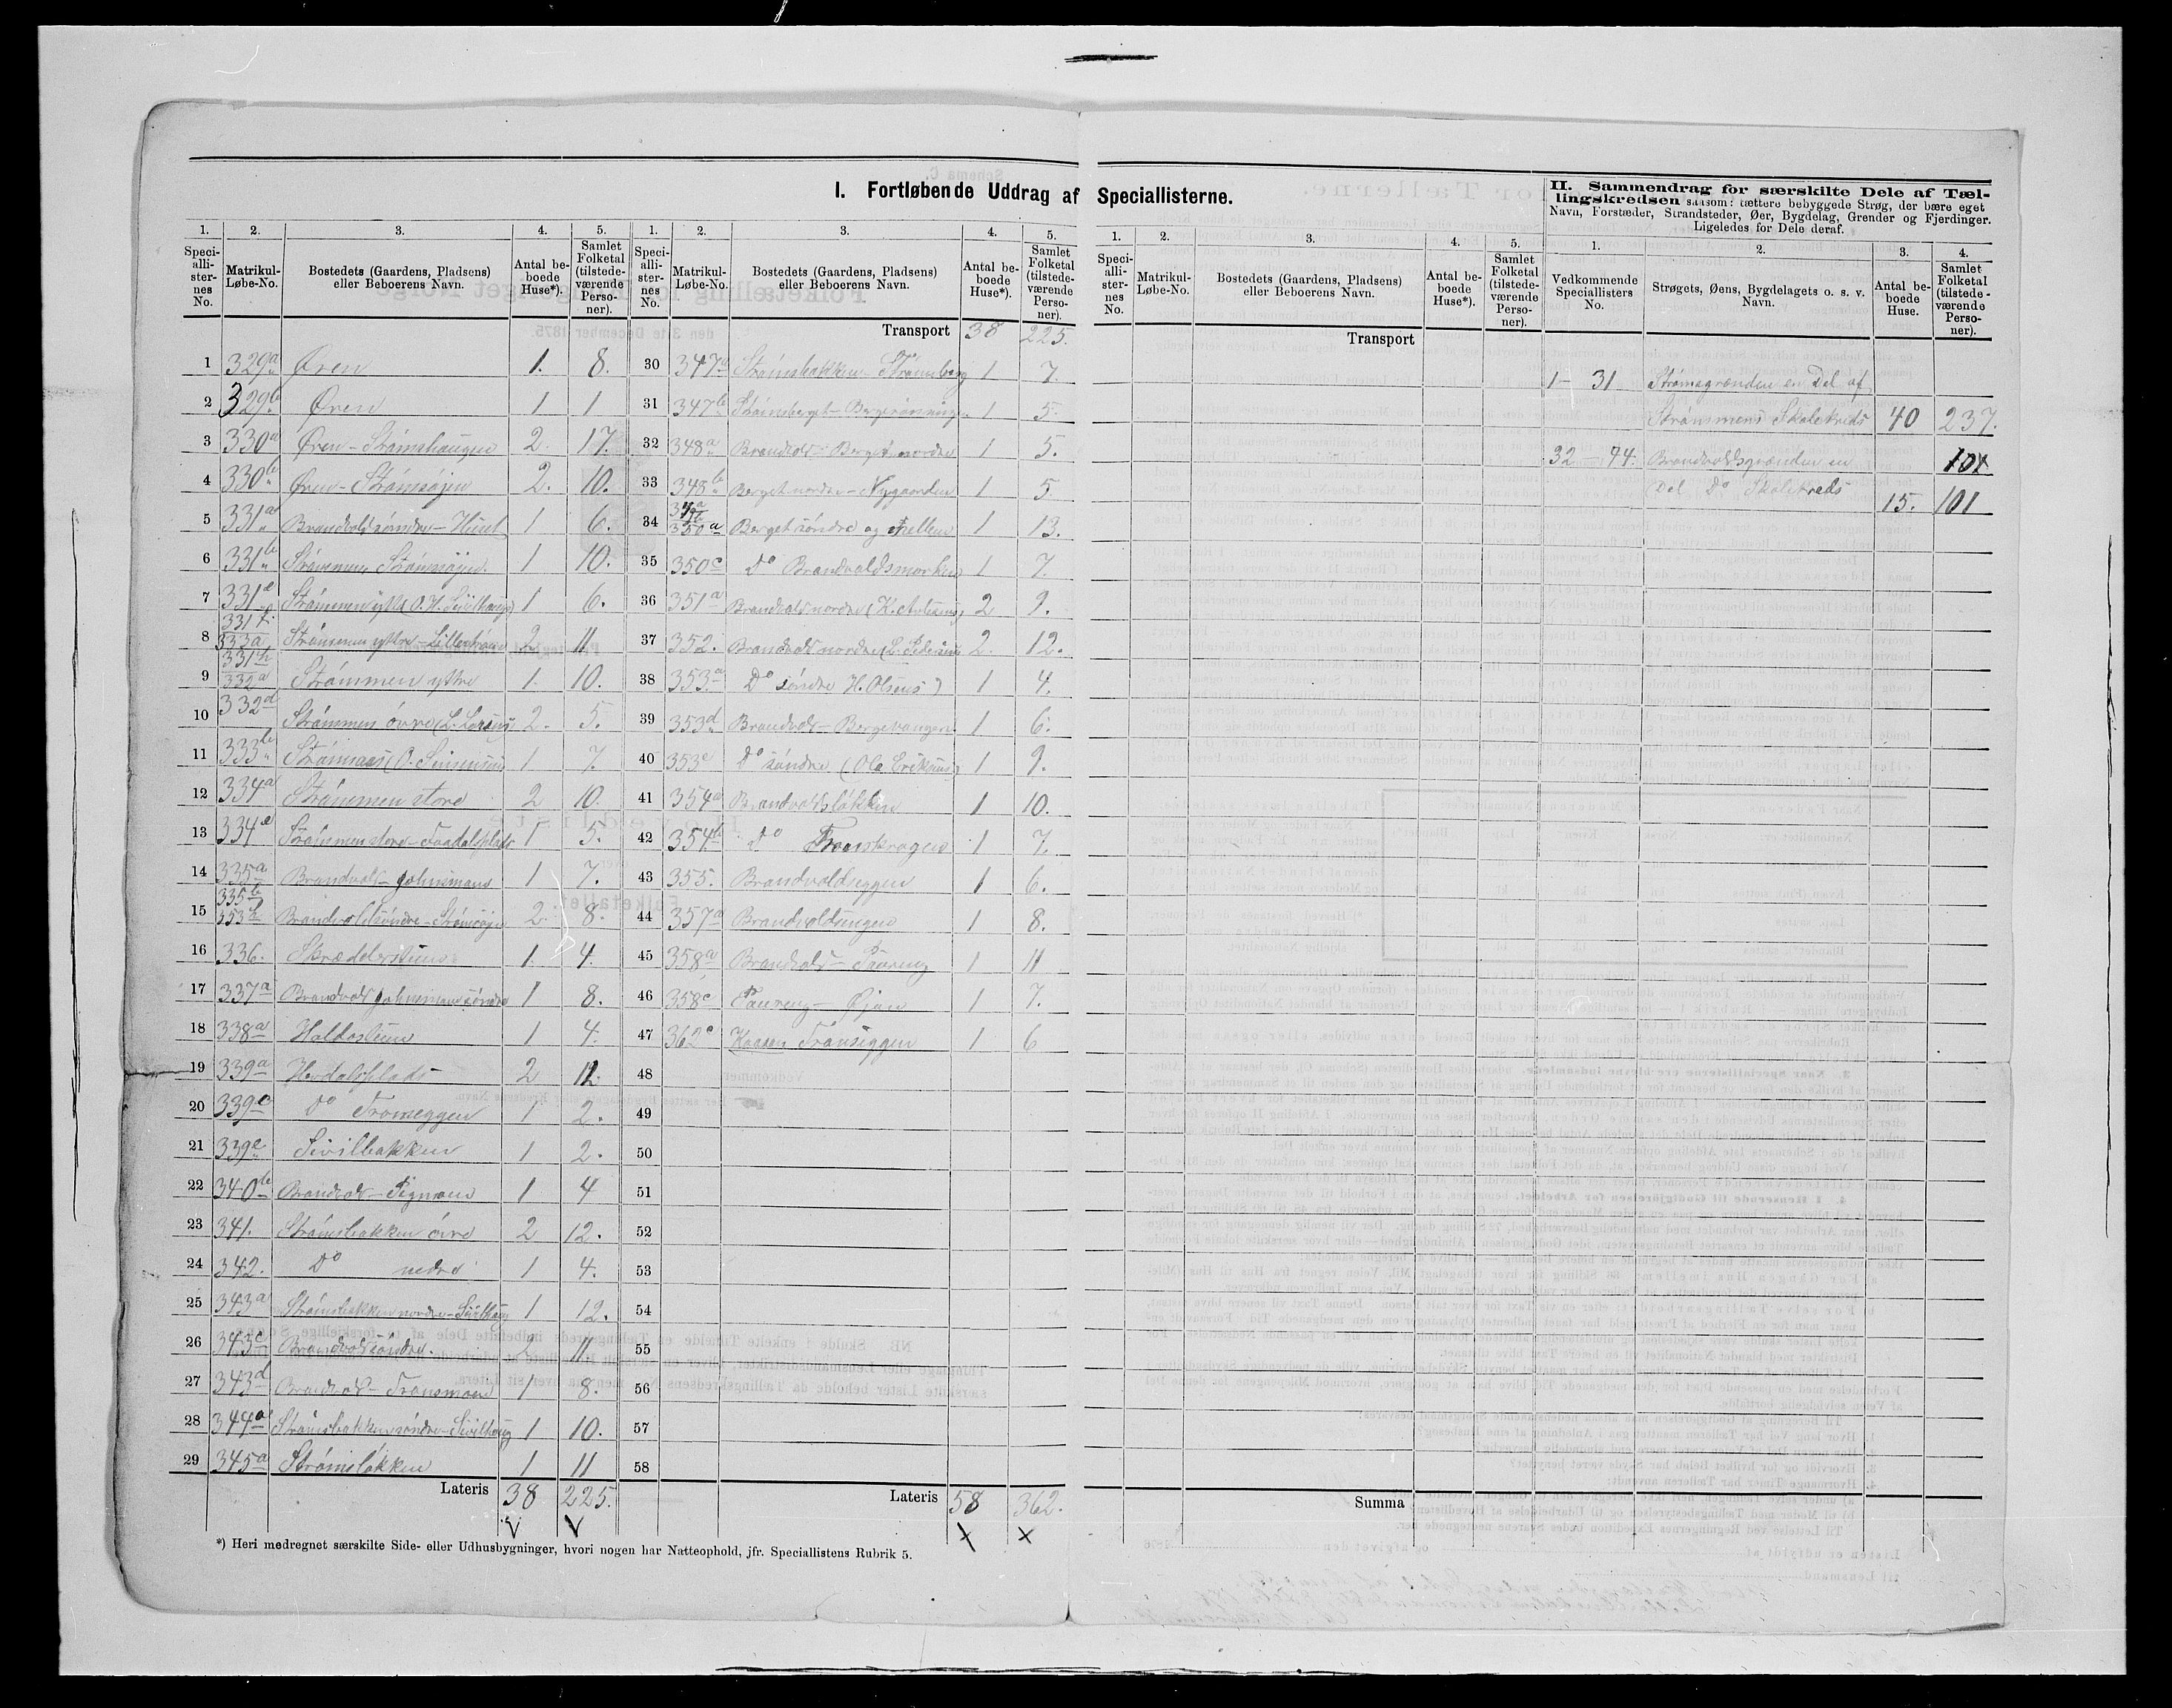 I. Fortløbende Uddrag af Speciallisterne.
II. Sammendrag for særskilte Dele af Tæl-
lingskredsen saasom: tættere bebyggede Strøg, der bære eget
Navn, Forstæder, Strandsteder, Øer, Bygdelag, Grender og Fjerdinger.
Ligeledes for Dele deraf.
1. 2. 3. 4. 5.
Speciallisternes No. Matrikul-Løbe-No. Bostedets (Gaardens, Pladsens) eller Beboerens Navn. Antal beboede Huse*). Samlet Folketal (tilstedeværende Personer).
1 329a Øren 1. 8.
2 329b Øren 1 1
3 330a Øren - Strømshaugen 2. 17.
4 330b Øren - Strømsøjen 2. 10.
5 331a Brandvold søndre - Huset 1 6.
6 331b Strømmen Strømsøjen 1 10.
7 331e Strømmen ytre (O. H. Sivilhaug) 1 6.
8 331f 333a Strømmen yttre - Lillestrøm 2 11
9 331h 332a Strømmen yttre 1. 10.
10 332d Strømmen øvre (L. Larsens) 2. 5.
11 333b Strømsaas (O. Simensens) 1 7.
12 334a Strømmen store 2 10.
13 334e Strømmen store - Faadalsplads 1 5.
14 335a Brandvold - Johnsmoens 1 7.
15 335b 353b Brandvold søndre - Strømsøjen 2. 8.
16 336. Skrædderstuens 1. 4.
17 337a Brandvold Johnsmoen søndre 1 8.
18 338a Haldosteen 1 4.
19 339a Herdalsplads 2 12.
20 339c Do Fromeggen 1 2.
21 339e Sivilbakken 1 2.
22 340b Brandvold - Tigmoen 1 4
23 341. Strømsbakken øvre 2 12.
24 342. Do nedre 1 4.
25 343a Strømsbakken nordre - Sivilhaug 1 12.
26 343c Brandvold søndre. 2 11.
27 343d Brandvold - Transmoen 1 8.
28 344a Strømsbakken søndre - Sivilhaug 1 10.
29 345a Strømsløkken 1 11
Lateris 38 225.
1. 2. 3. 4. 5.
Speciallisternes No. Matrikul-Løbe-No. Bostedets (Gaardens, Pladsens) eller Beboerens Navn. Antal beboede Huse*). Samlet Folketal (tilstedeværende Personer).
Transport 38 225.
30 347a Strømsbakken - Strømsberg 1 7.
31 347b Strømsberget - Bergerønningen 1 5.
32 348a Brandvold - Berget nordre 1 5.
33 348b Berget nordre - Nygaarden 1 5
34 350a Berget søndre og 1 13.
35 350c Do Brandvoldsmorken 1 7.
36 351a Brandvold nordre (K. Antensens) 2 9.
37 352. Brandvold nordre (L. Pedersens 2. 12.
38 353a Do søndre H. Olsens) 1 4.
39 353d Brandvold - Bergevangen 1 6.
40 353e Do søndre (Ole Eriksens) 1 9.
41 354a Brandvoldsløkken 1 10.
42 354b Do Franskragen 1 7.
43 355. Brandvoldseggen 1 6.
44 357a Brandvoldsengen 1 8.
45 358a Brandvold - Taureng 1 11
46 358c Taureng - Øjen 1 7.
47 362c Kaasen Franseggen 1 6
48
49
50
51
52
53
54
55
56
57
58
Lateris 58 362.
*) Heri medregnet særskilte Side- eller Udhusbygninger, hvori nogen har Natteophold, jfr. Speciallistens Rubrik 5.
1. 2. 3. 4. 5.
Speciallisternes No. Matrikul-Løbe-No. Bostedets (Gaardens, Pladsens) eller Beboerens Navn. Antal beboede Huse*). Samlet Folketal (tilstedeværende Personer).
Transport
Summa
1. 2. 3. 4.
Vedkommende Speciallisters No. Strøgets, Øens, Bygdelagets o. s. v. Navn. Antal beboede Huse. Samlet Folketal (tilstedeværende Personer).
1 - 31 Strømsgrenden en Del af
Strømmens Skolekreds 40 237.
32 - 44. Brandvoldsgrenden en 101
Del Do Skolekreds 15. 101